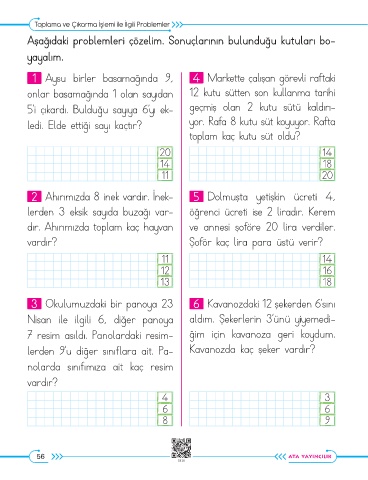 Toplama ve Çıkarma İşlemi ile İlgili Problemler
Aşağıdaki problemleri çözelim. Sonuçlarının bulunduğu kutuları bo-
yayalım.
1 Aysu birler basamağında 9,
onlar basamağında 1 olan sayıdan
5'i çıkardı. Bulduğu sayıya 6'yı ek-
ledi. Elde ettiği sayı kaçtır?
20
14
11
2 Ahırımızda 8 inek vardır. İnek-
lerden 3 eksik sayıda buzağı var-
dır. Ahırımızda toplam kaç hayvan
vardır?
11
12
13
3 Okulumuzdaki bir panoya 23
Nisan ile ilgili 6, diğer panoya
7 resim asıldı. Panolardaki resim-
lerden 9'u diğer sınıflara ait. Pa-
nolarda sınıfımıza ait kaç resim
vardır?
4
6
8
4 Markette çalışan görevli raftaki
12 kutu sütten son kullanma tarihi
geçmiş olan 2 kutu sütü kaldırı-
yor. Rafa 8 kutu süt koyuyor. Rafta
toplam kaç kutu süt oldu?
14
18
20
5 Dolmuşta yetişkin ücreti 4,
öğrenci ücreti ise 2 liradır. Kerem
ve annesi şoföre 20 lira verdiler.
Şoför kaç lira para üstü verir?
14
16
18
6 Kavanozdaki 12 şekerden 6'sını
aldım. Şekerlerin 3'ünü yiyemedi-
ğim için kavanoza geri koydum.
Kavanozda kaç şeker vardır?
3
6
9
56
ATA YAYINCILIK